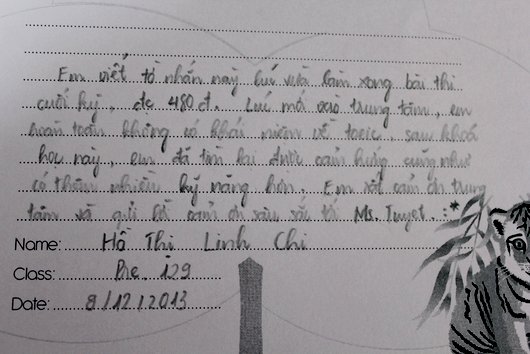 Em viết tờ nhắn này lúc vừa làm xong bài thi
cuối kỳ, đc 480đ. Lúc mới vào trung tâm, em
hoàn toàn không có khái niệm về toeic, sau khoá
học này, em đã tìm lại được cảm hứng cũng như
có thêm nhiều kỹ năng hơn. Em rất cảm ơn trung
tâm và gửi lời cảm ơn sâu sắc tới Ms. Tuyet. :*
Name: Hồ Thị Linh Chi
Class: Pre. 129
Date: 8/12/2013